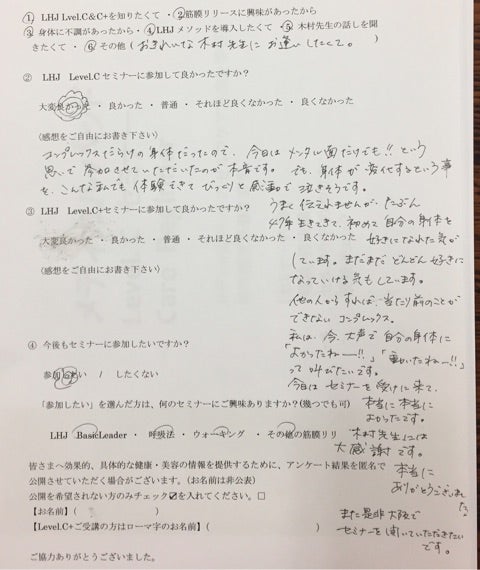 ① LHJ Lvel.C&C+を知りたくて・②筋膜リリースに興味があったから
③身体に不調があったから・④LHJメソッドを導入したくて・⑤ 木村先生の話しを聞
きたくて ・⑥その他(おきれいな木村先生にお逢いしたくて。)
② LHJ Level.Cセミナーに参加して良かったですか?
大変良かった ・ 良かった ・ 普通 ・ それほど良くなかった ・ 良くなかった
(感想をご自由にお書き下さい)
コンプレックスだらけの身体だったので、今日はメンタル面だけでも!!という
思いで参加させていただいたのが本音です。でも、身体が変化するという事
を、こんな私でも体験できてびっくりと感動で泣きそうです。
③ LHJ Level.C+セミナーに参加して良かったですか?
大変良かった ・ 良かった ・ 普通 ・ それほど良くなかった ・ 良くなかった
(感想をご自由にお書き下さい)
うまく伝えれませんが、たぶん
47年生きてきて、初めて自分の身体を
好きになれた気が
しています。まだまだどんどん好きに
なっていける気もしています。
他の人からすれば、当たり前のことが
できないコンプレックス。
私は、今、大声で自分の身体に
「よかったねー!!」「動いたねー!!」
って叫びたいです。
今日はセミナーを受けに来て、
本当に本当に
よかったです。
木村先生には
大感謝です。
本当に
ありがとうございました
また是非大阪で
セミナーを開いていただきたい
です。
④ 今後もセミナーに参加したいですか?
参加したい / したくない
「参加したい」を選んだ方は、何のセミナーにご興味ありますか?(幾つでも可)
LHJ BasicLeader ・ 呼吸法 ・ ウォーキング ・ その他の筋膜リリ
皆さまへ効果的、具体的な健康・美容の情報を提供するために、アンケート結果を匿名で
公開させていただく場合がございます。(お名前は非公表)
公開を希望されない方のみチェック☑を入れてください。□
【お名前】( )
【Level.C+ご受講の方はローマ字のお名前】( )
ご協力ありがとうございました。